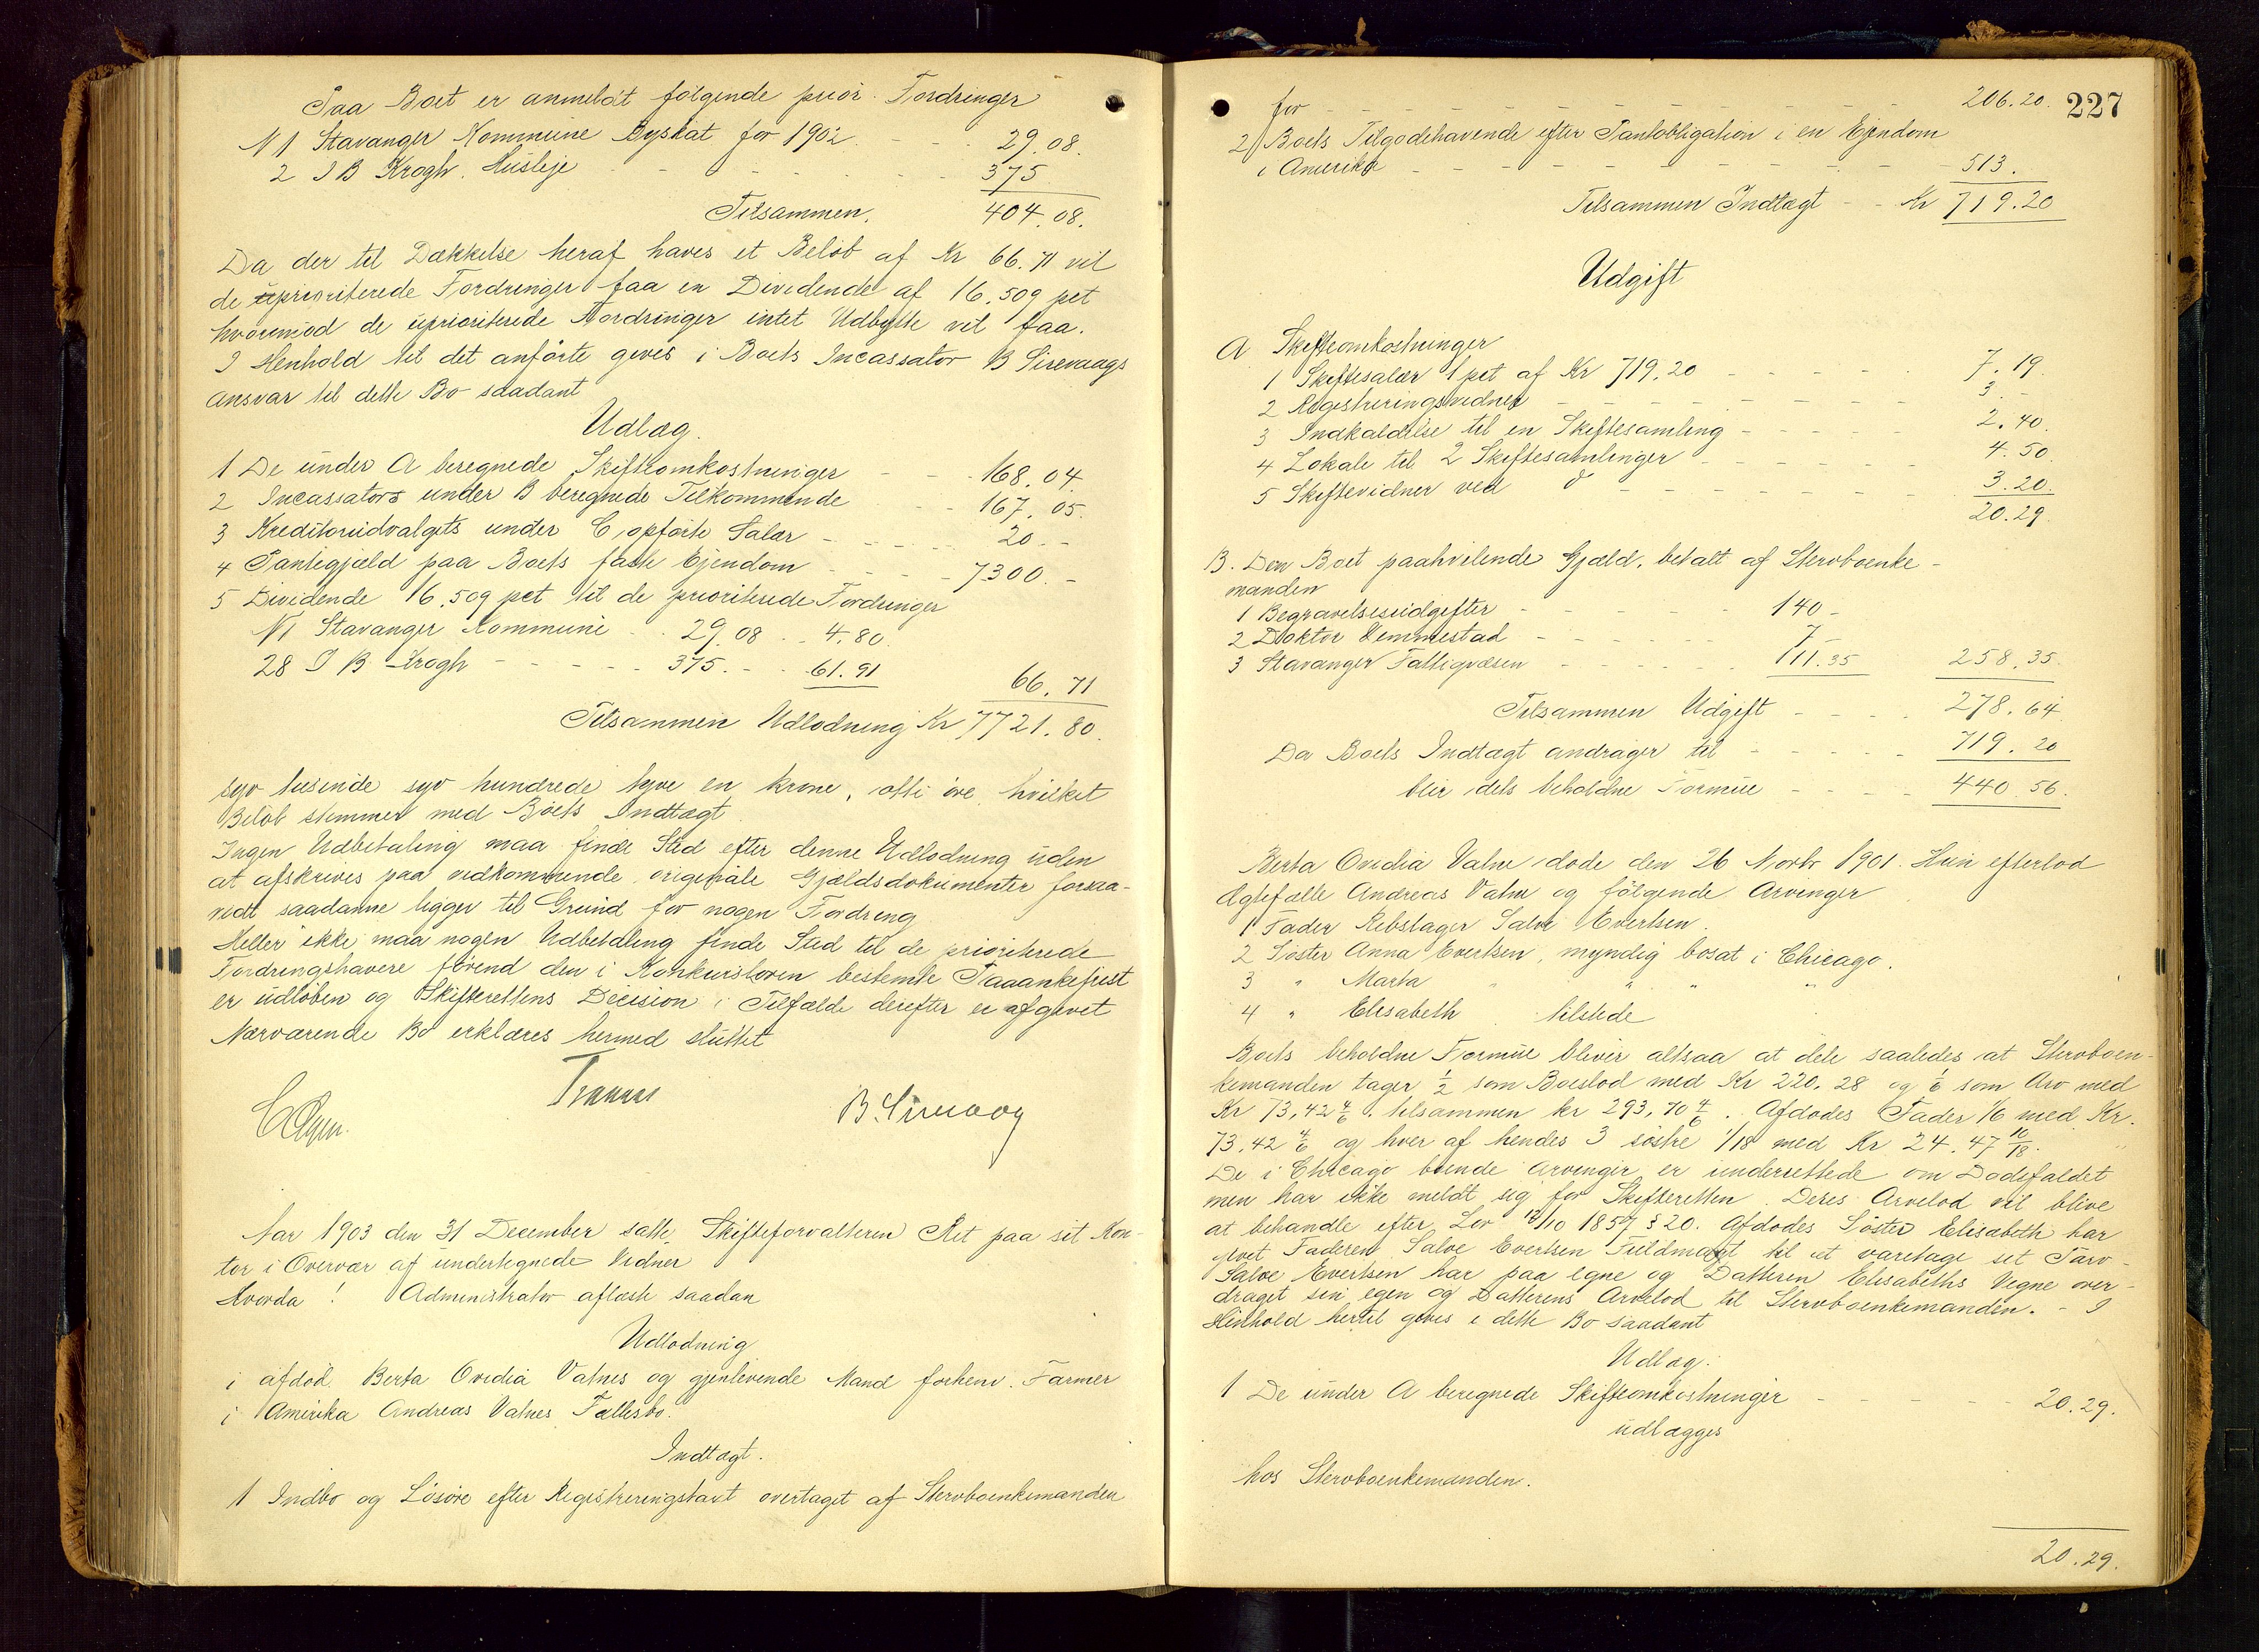 Paa Boet er anmeldt følgende prior. Fordringer
N 1 Stavanger Kommune Byskat for 1902 - - - 29.08.
2 I B Krogh. Husleje - - - - - - 375
Tilsammen. 404.08.
Da der til Dækkelse heraf haves et Beløb af Kr 66.71 vil
de prioriterede Fordringer faa en Dividende af 16.509 pct
hvorimod de uprioriterede Fordringer intet Udbytte vil faa.
I Henhold til det anførte gives i Boets Incassator B Sirevaags
ansvar til dette Bo saadant
Udlæg.
1 De under A beregnede Skifteomkostninger - - 168.04.
2 Incassators under B beregnede Tilkommende - - 167.05.
3 Kreditorudvalgets under C opførte Salær - - - 20. -
4 Pantegjæld paa Boets faste Ejendom - - - 7300. -
5 Dividende 16.509 pct til de prioriterede Fordringer
N 1 Stavanger Kommune . . 29.08 . . 4.80
28 I B Krogh - - - - - 375. - - 61.91
66.71
Tilsammen Udlodning Kr 7721.80.
syv tusinde syv hundrede tyve en krone, otti øre, hvilket
Beløb stemmer med Boets Indtægt
Ingen Udbetaling maa finde Sted efter denne Udlodning uden
at afskrives paa vedkommende originale Gjældsdokumenter forsaa-
vidt saadanne ligger til Grund for nogen Fordring
Heller ikke maa nogen Udbetaling finde Sted til de prioriterede
Fordringshavere førend den i Konkursloven bestemte Paaankefrist
er udløben og Skifterettens Decision i Tilfælde derefter er afgivet
Nærværende Bo erklæres hermed sluttet
B. Sirevaag
Aar 1903 den 31 December satte Skifteforvalteren Ret paa sit Kon-
tor i Overvær af undertegnede Vidner
Hvorda! Administrator aflæste saadan
Udlodning
i afdød Berta Ovidia Vatnes og gjenlevende Mand forhenv. Farmer
i Amerika Andreas Vatnes Fællesbo.
Indtægt.
1 Indbo og Løsøre efter Registreringstaxt overtaget af Stervboenkemanden
227
for - - - - - - - - 206.20.
2) Boets Tilgodehavende efter Pantobligation i en Ejendom
i Amerika - - - - - - - - 513.
Tilsammen Indtægt - - Kr 719.20
Udgift
A Skifteomkostninger
1 Skiftesalær 1 pct af Kr 719.20 - - - - - 7.19.
2 Registreringsvidner - - - - - - - 3. -
3 Indkaldelse til en Skiftesamling - - - - - 2.40.
4 Lokale til 2 Skiftesamlinger - - - - - - 4.50.
5 Skiftevidner ved do - - - - - - - 3.20.
20.29.
B. Den Boet paahvilende Gjæld, betalt af Stervboenke-
manden
1 Begravelsesudgifter - - - - - 140 -
2 Doktor Vemmestad - - - - - 7 -
3 Stavanger Fattigvæsen - - - - - 111.35 258.35.
Tilsammen Udgift - - - - 278.64
Da Boets Indtægt andrager til - - - - - 719.20
blir dets beholdne Formue - - - - 440.56.
Berta Ovidia Vatne døde den 26 Novbr 1901. Hun efterlod
Ægtefælle Andreas Vatne og følgende Arvinger
1 Fader Rebslager Salve Evertsen.
2 Søster Anna Evertsen, myndig bosat i Chicago.
3 " Marta " " " "
4 " Elisabeth tilstede
Boets beholdne Formue bliver altsaa at dele saaledes at Stervboen-
kemanden tager 1/2 som Boeslod med Kr 220.28 og 1/6 som Arv med
Kr 73,42 4/6. tilsammen kr 293,70 4/6. Afdødes Fader 1/6 med Kr.
73.42 4/6 og hver af hendes 3 søstre 1/18 med Kr 24.47 10/18.
De i Chicago boende Arvinger er underrettede om Dødsfaldet
men har ikke meldt sig for Skifteretten. Deres Arvelod vil blive
at behandle efter Lov 12/10 1857 § 20. Afdødes Søster Elisabeth har
givet Faderen Salve Evertsen Fuldmagt til at varetage sit Tarv -
Salve Evertsen har paa egne og Datteren Elisabeths Vegne over-
draget sin egen og Datterens Arvelod til Stervboenkemanden. - I
Henhold hertil gives i dette Bo saadant
Udlæg.
1 De under A beregnede Skifteomkostninger - - - - - 20.29.
udlægges
hos Stervboenkemanden.
20.29.